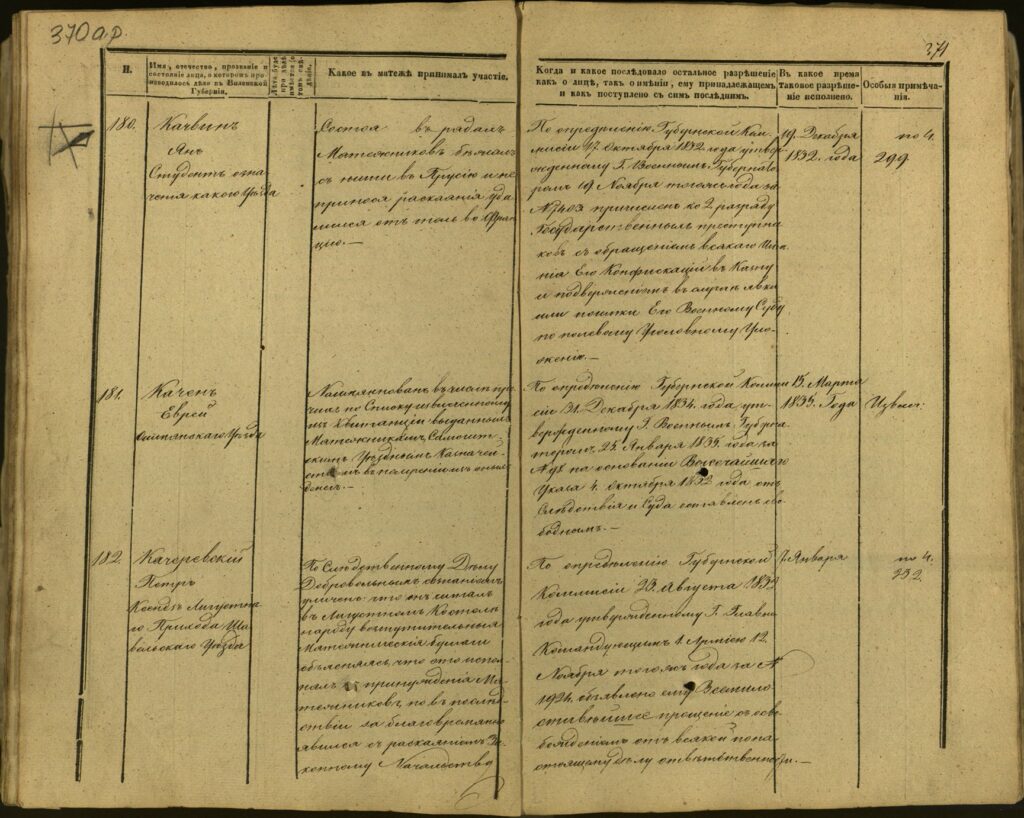 370 а.р.
371
Н.
Имя, отечество, прозваніе и
состояніе лица, о которомъ про-
изводилось дѣло въ Виленской
Губерніи.
Какое въ мятежѣ принималъ участіе.
Когда и какое послѣдовало остальное разрѣшеніе
какъ о лицѣ, такъ о имѣніи, ему принадлежащемъ
и какъ поступлено съ симъ послѣднимъ.
Въ какое время
таковое разрѣше-
ніе исполнено.
Особыя примѣча-
нія.
180.
Янъ
Студентъ
какого Уѣзда
Состоя въ рядахъ
Мятежниковъ бѣжалъ
съ ними въ Прусію и не
принося раскаянія уда-
лился отъ толь во Фран-
цію.—
По опредѣленію Губернской Ком-
мисіи 17 Октября 1832 года утвер-
жденному Г. Военнымъ Губернато-
ромъ 19 Ноября тогожъ года за
№ 7403 причисленъ ко 2 разряду
Государственныхъ преступни-
ковъ съ обращеніемъ всякаго Имѣ-
нія Его Конфискаціи въ Казну
и подверженіемъ въ случаѣ явки
или поимки Его Военному Суду
по полевому Уголовному Уло-
женію.—
19. Декабря
1832. года
по 4.
299.
181.
Качень
Еврей
Ошмянскаго Уѣзда
въ числѣ
по Списку
Мятежниками
Уѣзднымъ Казначей-
денегъ.—
По опредѣленію Губернской Комми-
сіи 31. Декабря 1834. года ут-
вержденному Г. Военнымъ Губерна-
торомъ 25. Января 1835. года за
на основаніи Высочайшаго
Указа 4. Октября 1832 года отъ
Слѣдствія и Суда оставленъ сво-
боднымъ.—
15. Марта
1835. Года
182.
Качоревскій
Петръ
Ксендзъ
Прихода Ша-
вельскаго Уѣзда
По Слѣдственному Дѣлу
Добровольнымъ сознаніемъ
уличено: что онъ читалъ
въ Костелѣ
народу возмутительныя
Мятежническія бумаги
объясняясь, что это испол-
нялъ принужденія Мя-
тежниковъ, но въ послѣд-
ствіи за благовременно
явился съ раскаяніемъ За-
конному Начальству
По опредѣленію Губернской
Коммисіи 23. Августа 1832
года утвержденному Г. Главно-
Командующимъ 1. Арміею 12.
Ноября тогожъ года за №
1924. объявлено ему Всемило-
стивѣйшее прощеніе съ осво-
божденіемъ отъ всякой по на-
стоящему дѣлу отвѣтственности.—
Января
по 4.
232.